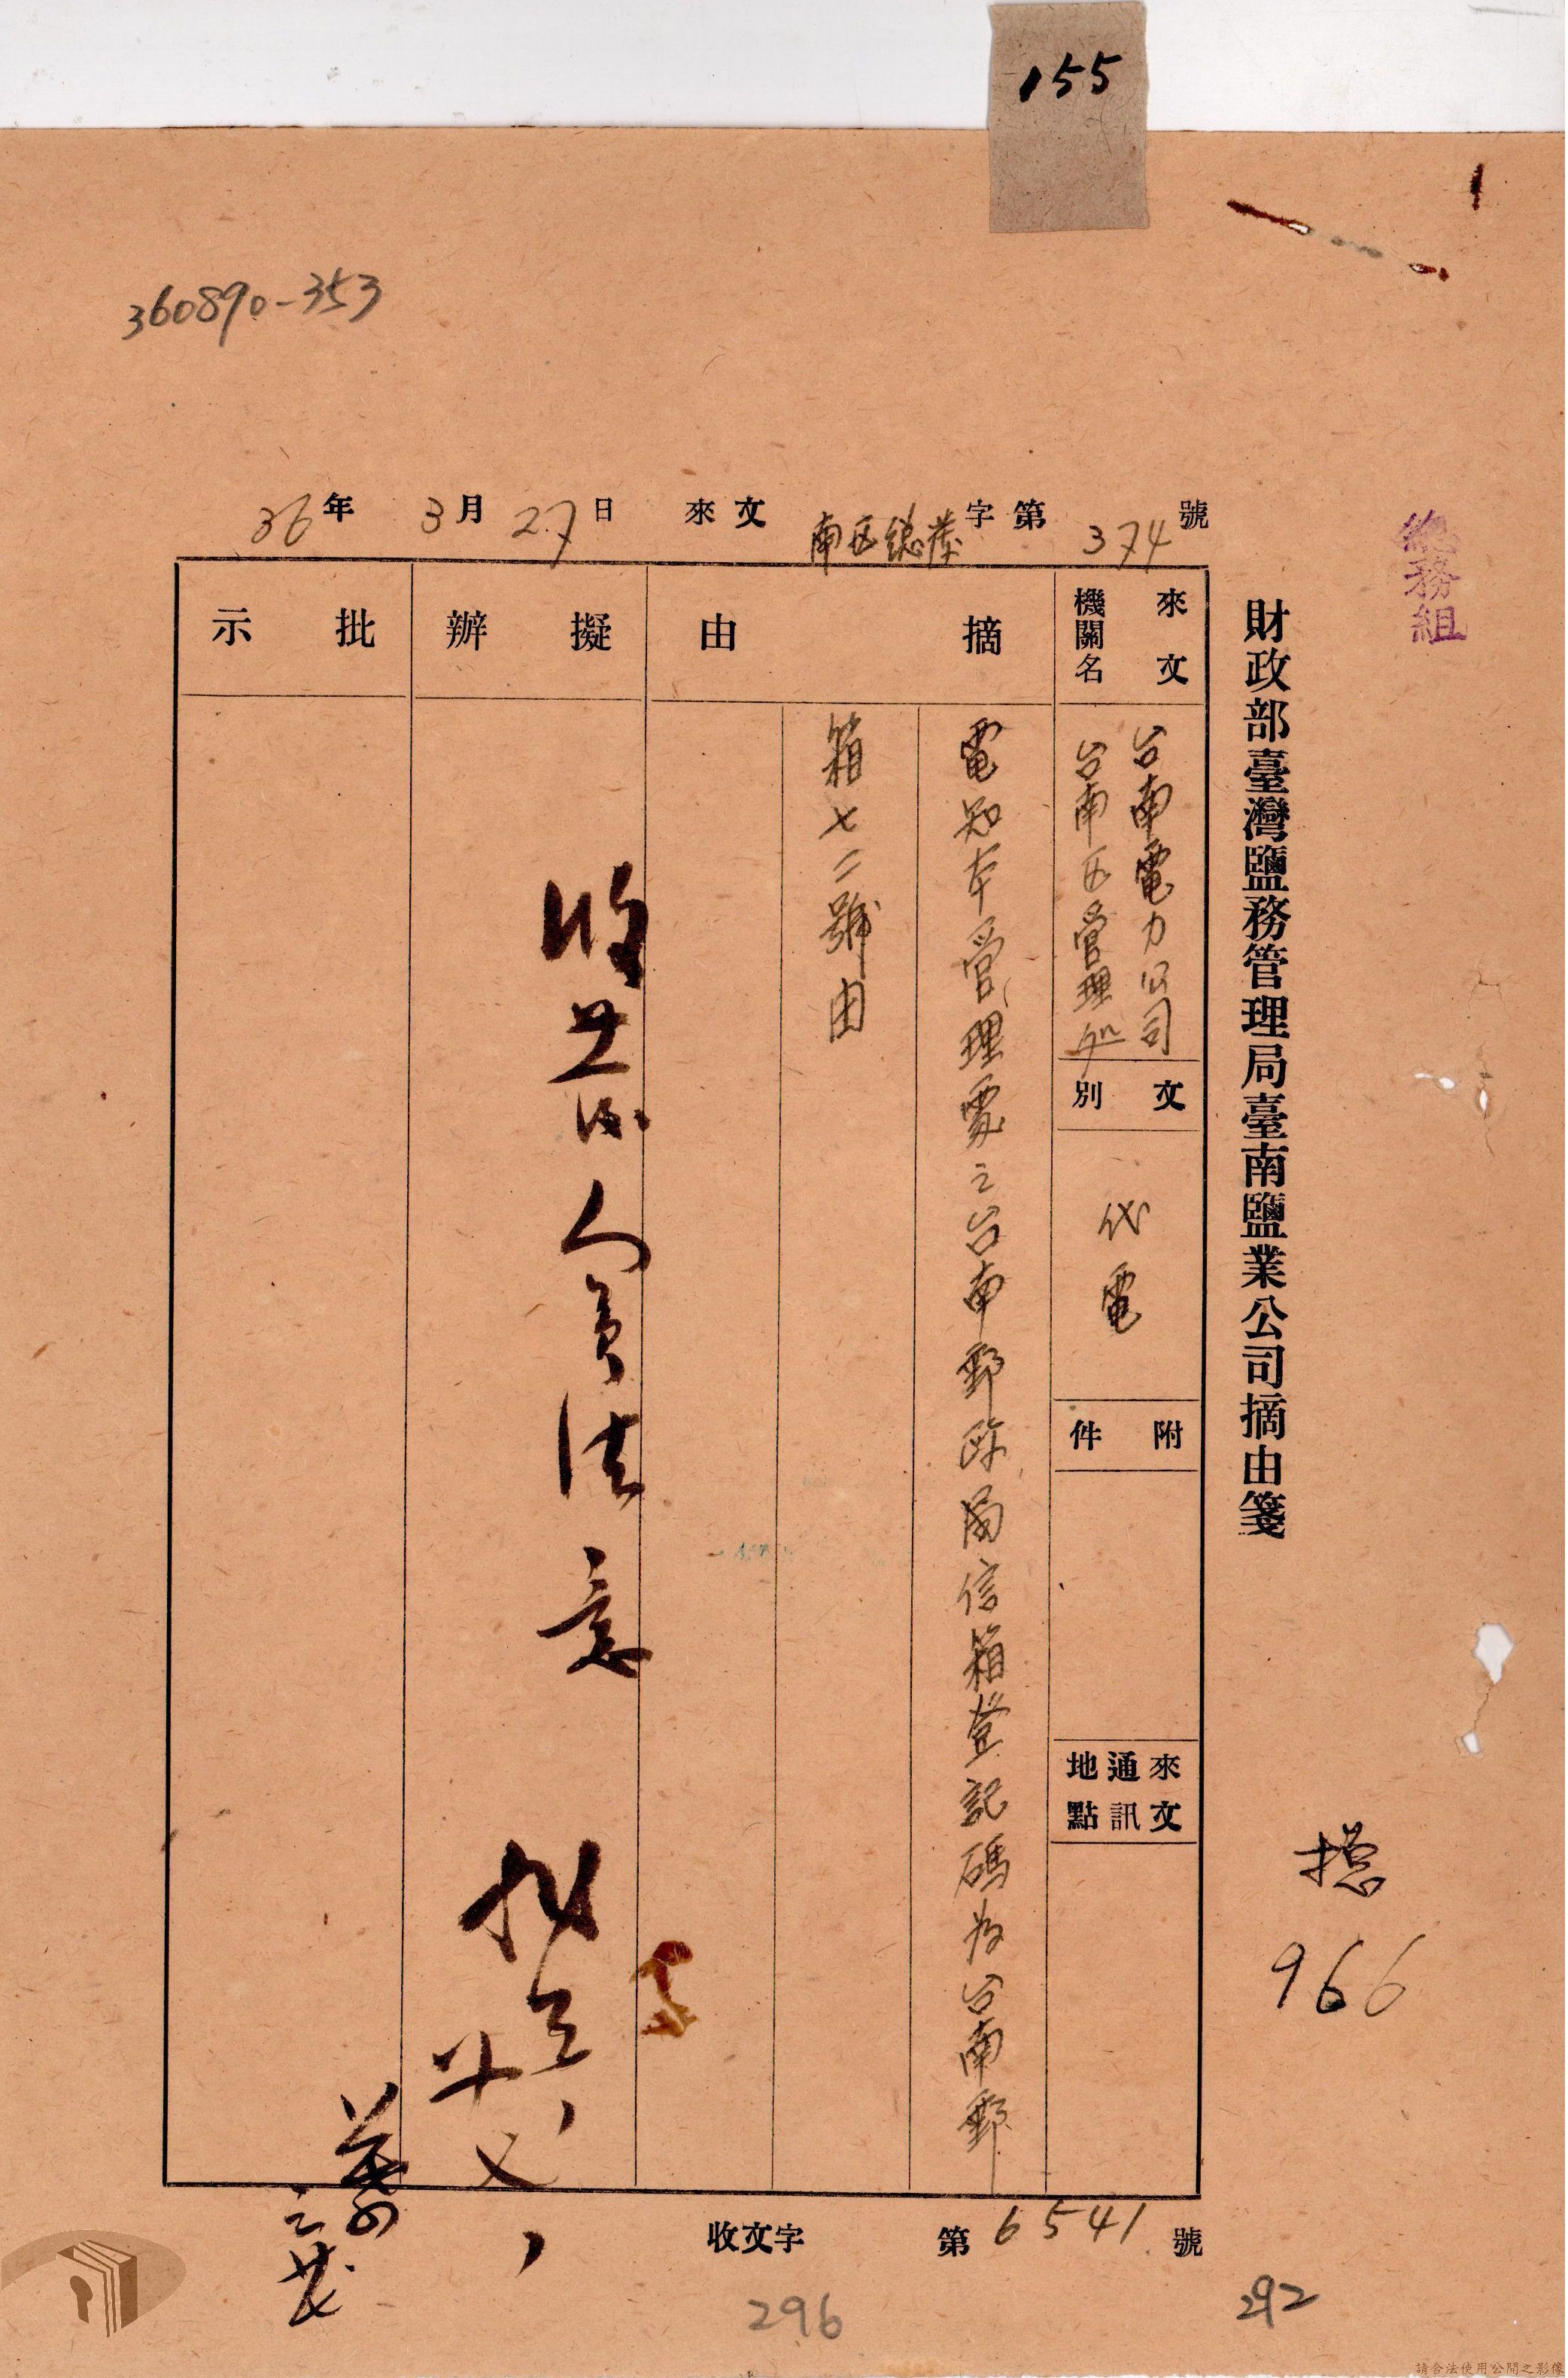 155
360890-353
總務組
財政部臺灣鹽務管理局臺南鹽業公司摘由箋
總
966
36年3月27日來文南區總發字第374號
來文機關名
台南電力公司
台南區管理処
文別
代電
附件
來文通訊地點
摘由
電知本管理處之台南郵政局信箱登記碼為台南郵
箱七二號由
擬辦
收發人員注意
批示
收文字第6541號
296
292
請合法使用公開之影像